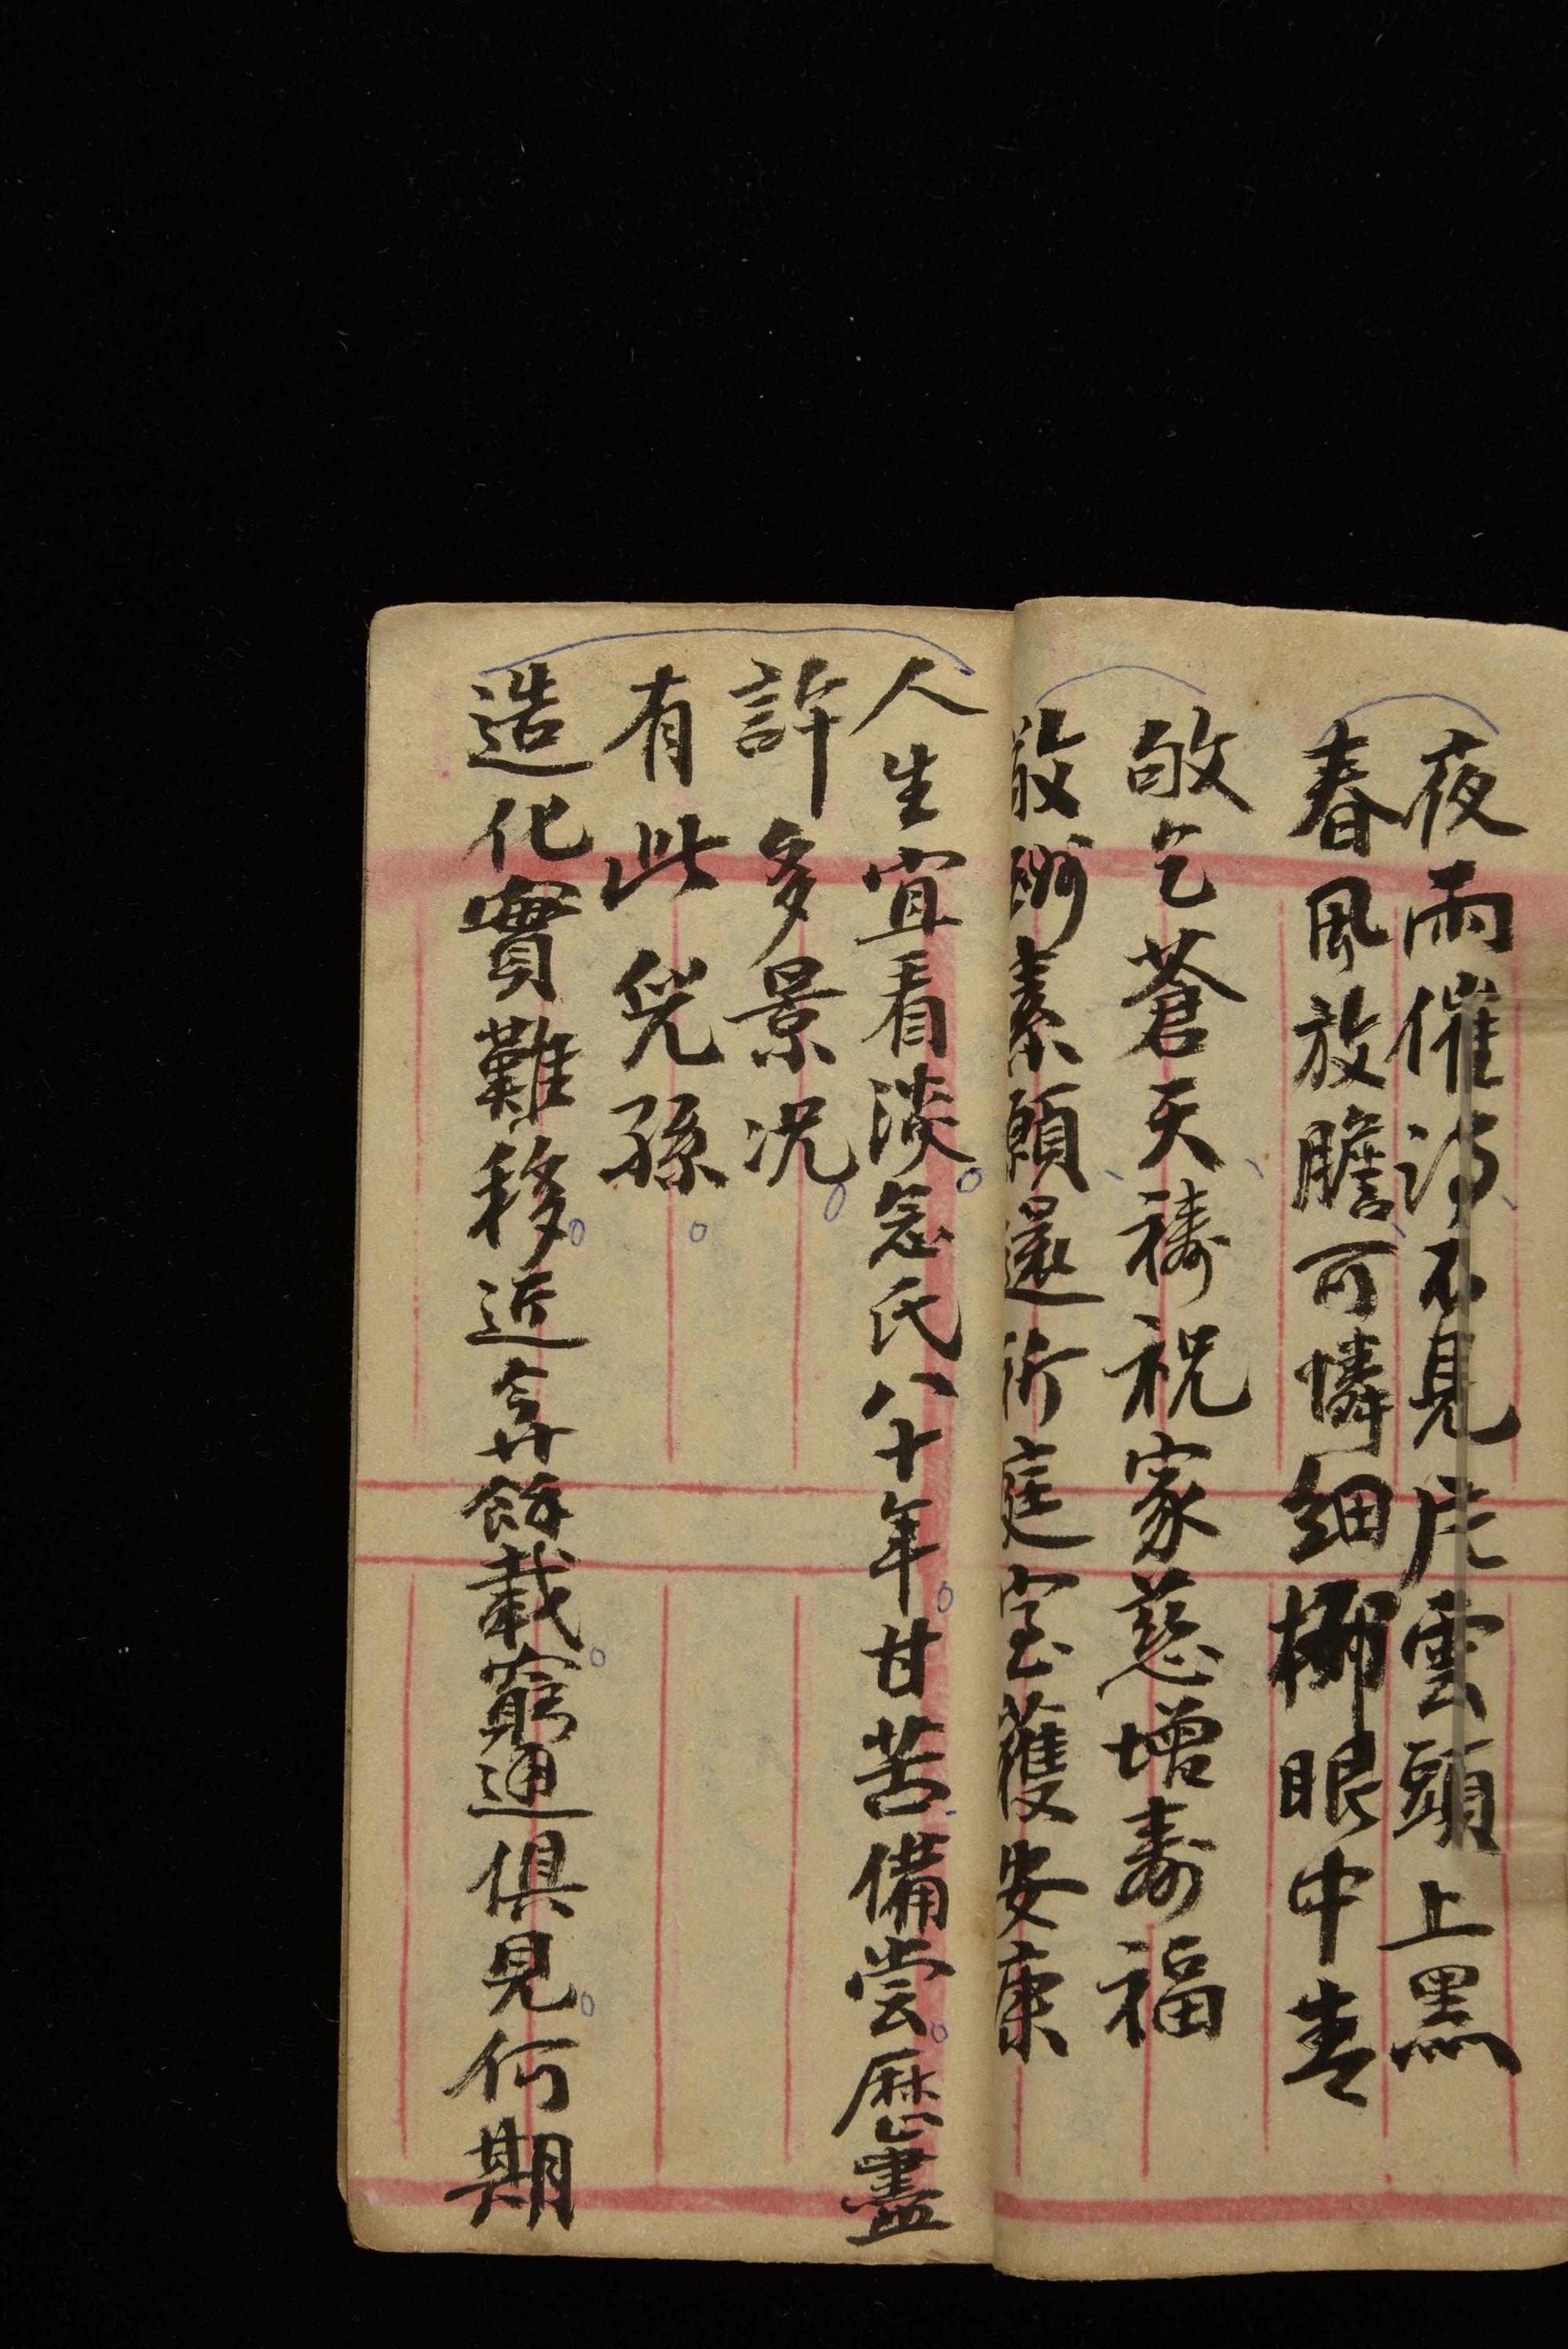 夜雨催詩不見片雲頭上黑
春風放膽可憐細柳眼中青
敬乞蒼天禱祝家慈增寿福
敬酬素願還祈庭室獲安康
人生宜看淡念氏八十年甘苦備嘗歷盡
許多景况
有此兒孫
造化實難移近今廿餘載窮通俱見何期